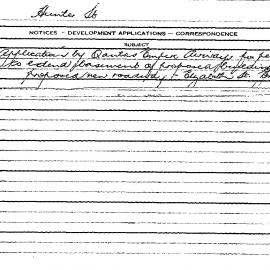 Hunter St
NOTICES - DEVELOPMENT APPLICATIONS - CORRESPONDENCE
SUBJECT
Application by Qantas Empire Airways for pe
to extend basement of proposed building
proposed new roadway - Elizabeth St.